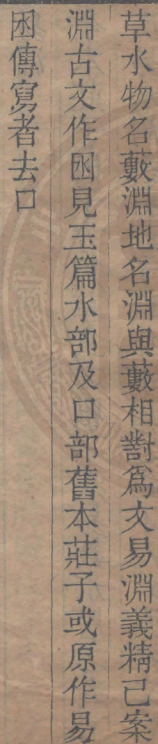 草水物名藪淵地名淵與藪相對爲文易淵義精己案
淵古文作囦見玉篇水部及口部舊本莊子或原作易
囦傳寫者去口